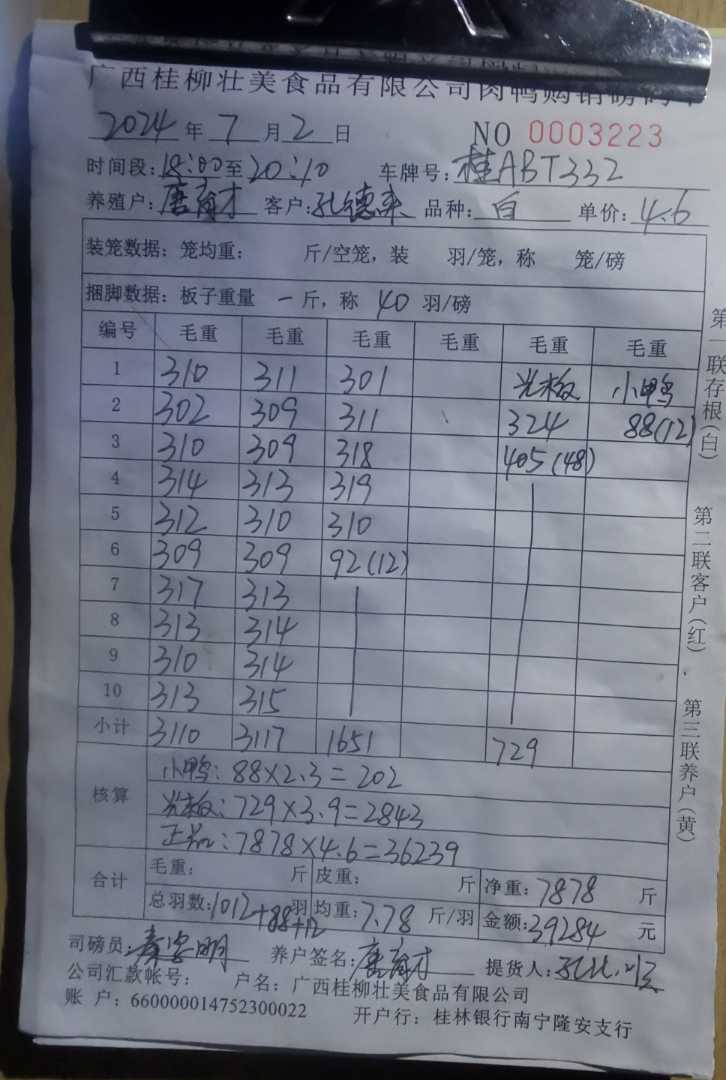 广西桂柳壮美食品有限公司肉鸭购销磅码单
2024年7月2日 NO 0003223
时间段:18:00至20:10 车牌号:桂ABT332
养殖户:唐育才 客户:孔德来 品种:白 单价:4.6
装笼数据:笼均重: 斤/空笼,装 羽/笼,称 笼/磅
捆脚数据:板子重量 一 斤,称 40 羽/磅
编号 毛重 毛重 毛重 毛重 毛重 毛重
1 310 311 301 光板 小鸭
2 302 309 311 324 88(12)
3 310 309 318 405(48)
4 314 313 319
5 312 310 310
6 309 309 92(12)
7 317 313
8 313 314
9 310 314
10 313 315
小计 3110 3117 1651 729
核算 小鸭:88×2.3=202
光板:729×3.9=2843
正品:7878×4.6=36239
合计 毛重: 斤 皮重: 斤 净重:7878 斤
总羽数:1012+88+12羽 均重:7.78 斤/羽 金额:39284 元
司磅员: 养户签名:唐育才 提货人:
公司汇款帐号: 户名:广西桂柳壮美食品有限公司
账户:660000014752300022 开户行:桂林银行南宁隆安支行
第一联存根(白)
第二联客户(红)
第三联养户(黄)